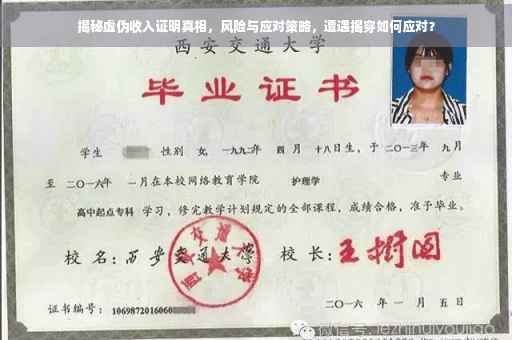 揭秘虚伪收入证明真相，风险与应对策略，遭遇揭穿如何应对？
西安交通大学
毕业证书
学生 性别 女，一九九二年 四月 十八日生，于二〇一三年 九月
至 二〇一六年 一月在本校网络教育学院 护理学 专业
高中起点专科 学习，修完教学计划规定的全部课程，成绩合格，准予毕业。
校名：西安交通大学 校长：王树国
西安交通大学
证书编号：1069872016060
二〇一六年一月五日
微信号: jezhihuiyoujiao